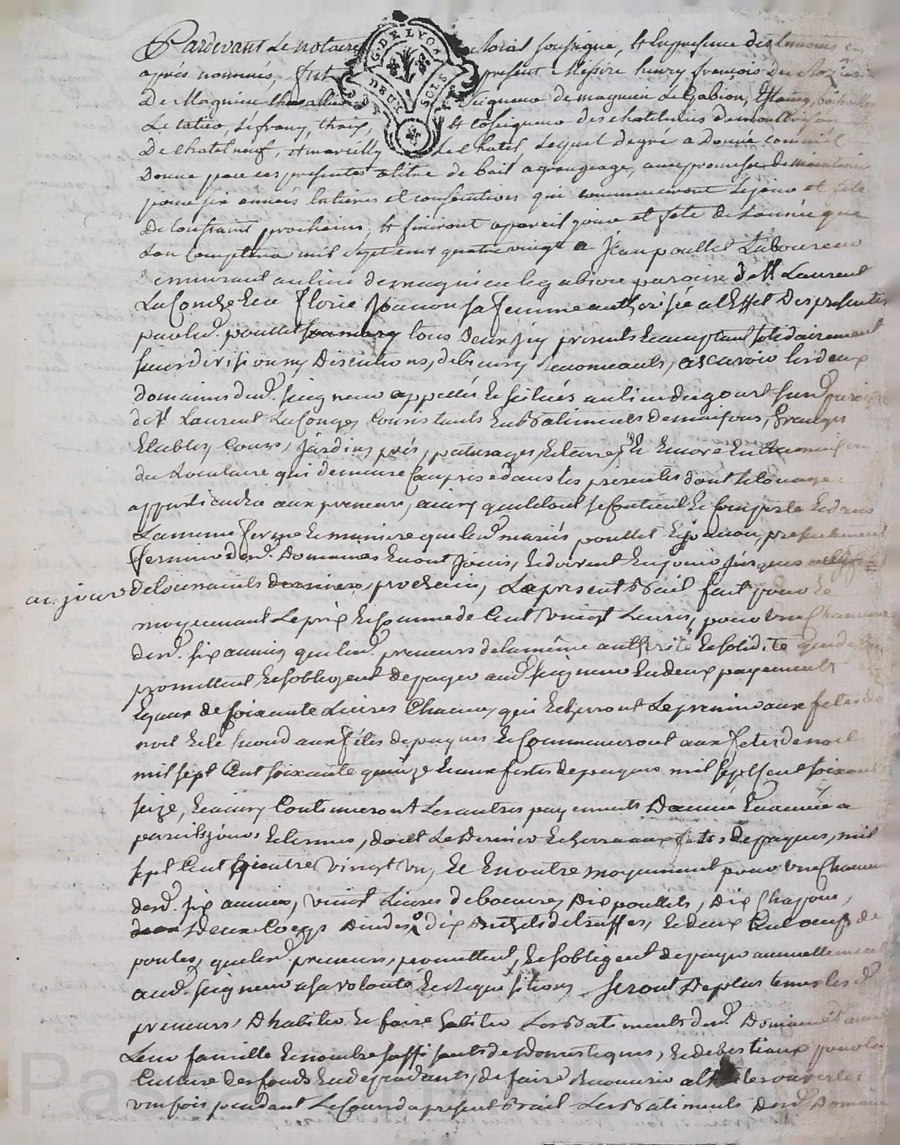 Pardevant Le notaire Roial soussigné, Et En presence des temoins cy
après nommés, fut present Messire henry françois Du Rozier
De Magnieu chevallier Seigneur de magnieu Le Gabion,
Le tatier, Et Coseigneur des chatellenies de montbrison
De chatelneuf, Et marcilly Le chatel, Lequel de gré a Donné comme il
Donne par ces presentes a titre de bail a grangeage, avec promesse de maintenir
pour six années Entieres et consécutives qui commenceront Le jour et fete
De toussaint prochaine, Et finiront a pareil jour et fete de L'année que
L'on Comptera mil sept cent quatre vingt a Jean poullet Laboureur
demeurant au lieu de magnieu Le gabion paroisse de St. Laurent
La Conche Et a florie Jouanon sa femme authorisée a L'Effet Des presentes
par led. poullet son mary tous Deux icy presents Et acceptant solidairement
sans division ny Discutions, a scavoir Les deux
domaines dud. seigneur appellés Et situés au lieu Dugourt susd. paroisse
de St. Laurent La Conche, Consistants En Batiments de maisons, Granges
Etables, Cours, Jardins, prés, paturages, Et terres, Et Encore En La maison
du Locataire qui demeure Comprise dans les presentes dont Le Louage
appartiendra aux preneurs, ainsy que Le tout se Contient Et Comporte Et dans
La même forme Et maniere que Lesd. mariés poullet Et Jouanon presentement
fermiers desd. Domaines En ont Joui, Et doivent En Jouir Jusques
au jour de La toussaints prochain, Le present Bail fait pour Et
moyennant Le prix Et somme de Cent vingt Livres, pour une Chacune
desd. six années que Lesd. preneurs de la même authorité Et solidité que dessus
promettent Et s'obligent de payer aud. seigneur En deux payements
Egaux de soixante Livres Chacun, qui Echerront Le premier aux fetes de
noel Et Le second aux fêtes de paques Et Commenceront aux fetes de noel
mil sept Cent soixante quinze Et aux fetes de paques mil sept Cent soixante
seize, Et ainsy Continueront Les autres payements D'année En année a
pareils jours Et termes, dont Le Dernier Echerra aux fêtes de paques, mil
sept Cent quatre vingt un, Et En outre moyennant pour une Chacune
desd. six années, vingt Livres de beurre, Dix poullets, Dix Chapons,
Deux Coqs Dindes, dix Bichets de truffes, Et deux Cent oeufs de
poules, que Lesd. preneurs, promettent, Et s'obligent de payer annuellement
aud. seigneur a sa volonté Et Requisitions, Seront De plus tenus Lesd.
preneurs, D'habiter Et faire habiter Les Batiments desd. Domaines
Leur famille Et nombre suffisants de Domestiques, Et de Bestiaux pour La
Culture Des fonds En dependants, de faire Recouvrir a
une fois pendant Le Cours du present Bail Les Batiments Desd. Domaines